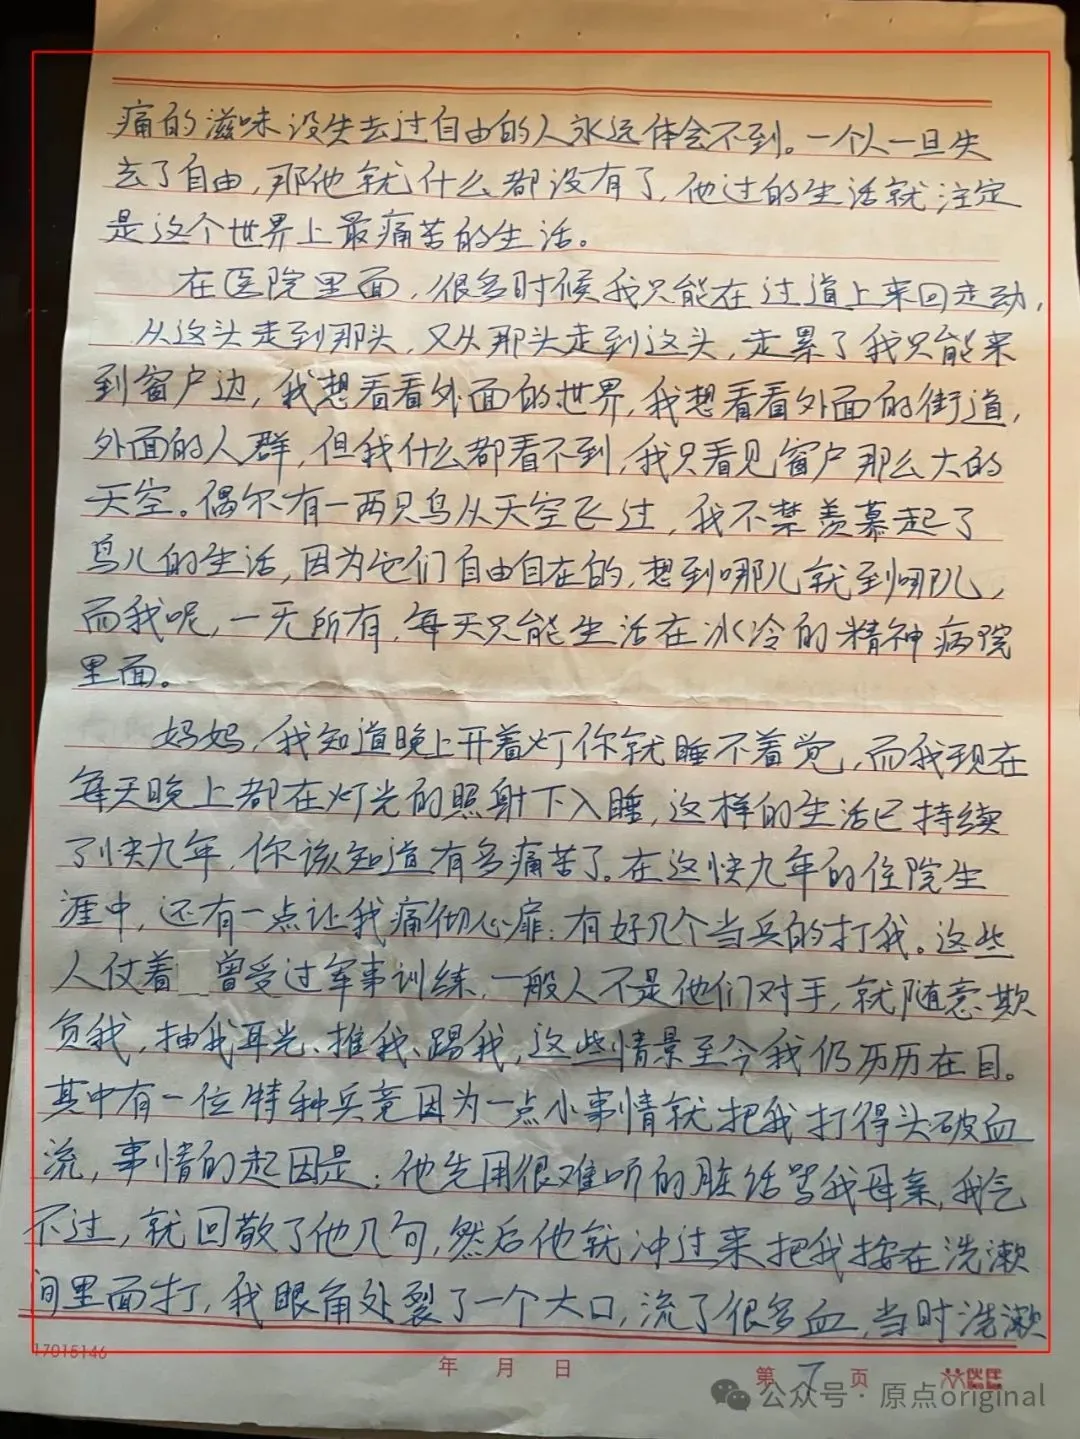 痛的滋味没失去过自由的人永远体会不到。一个人一旦失
去了自由,那他就什么都没有了,他过的生活就注定
是这个世界上最痛苦的生活。
在医院里面,很多时候我只能在过道上来回走动,
从这头走到那头,又从那头走到这头,走累了我只能来
到窗户边,我想看看外面的世界,我想看看外面的街道,
外面的人群,但我什么都看不到,我只看见窗户那么大的
天空。偶尔有一两只鸟从天空飞过,我不禁羡慕起了
鸟儿的生活,因为它们自由自在的,想到哪儿就到哪儿,
而我呢,一无所有,每天只能生活在冰冷的精神病院
里面。
妈妈,我知道晚上开着灯你就睡不着觉,而我现在
每天晚上都在灯光的照射下入睡,这样的生活已持续
了快九年,你该知道有多痛苦了。在这快九年的住院生
涯中,还有一点让我痛彻心扉:有好几个当兵的打我。这些
人仗着 曾受过军事训练,一般人不是他们对手,就随意欺
负我,抽我耳光、推我、踢我,这些情景至今我仍历历在目。
其中有一位特种兵竟因为一点小事情就把我打得头破血
流,事情的起因是:他先用很难听的脏话骂我母亲,我气
不过,就回敬了他几句,然后他就冲过来把我按在洗漱
间里面打,我眼角处裂了一个大口,流了很多血,当时洗漱
17015146
年 月 日
第 7 页
公众号·原点original